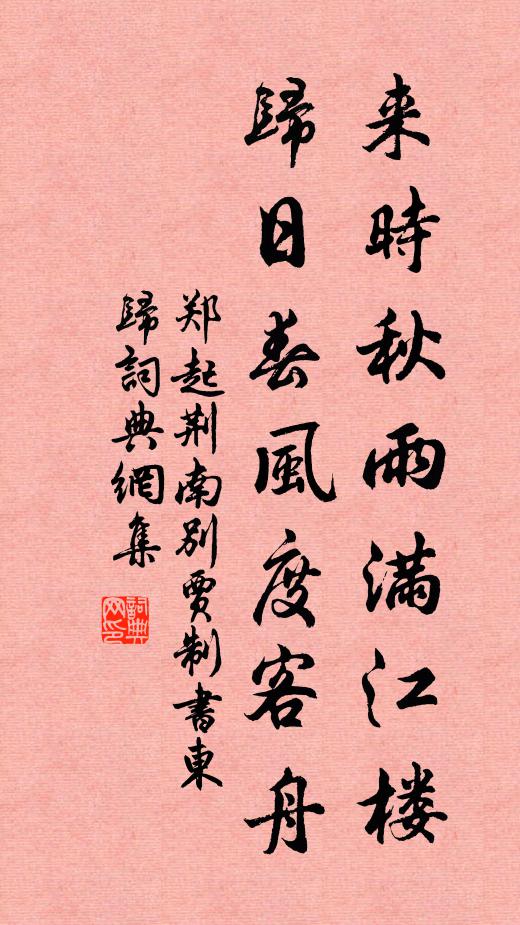 来時秋雨满江楼
歸日春風度客舟
郑起荆南别賈制書東
歸詞典網集
詞典网印